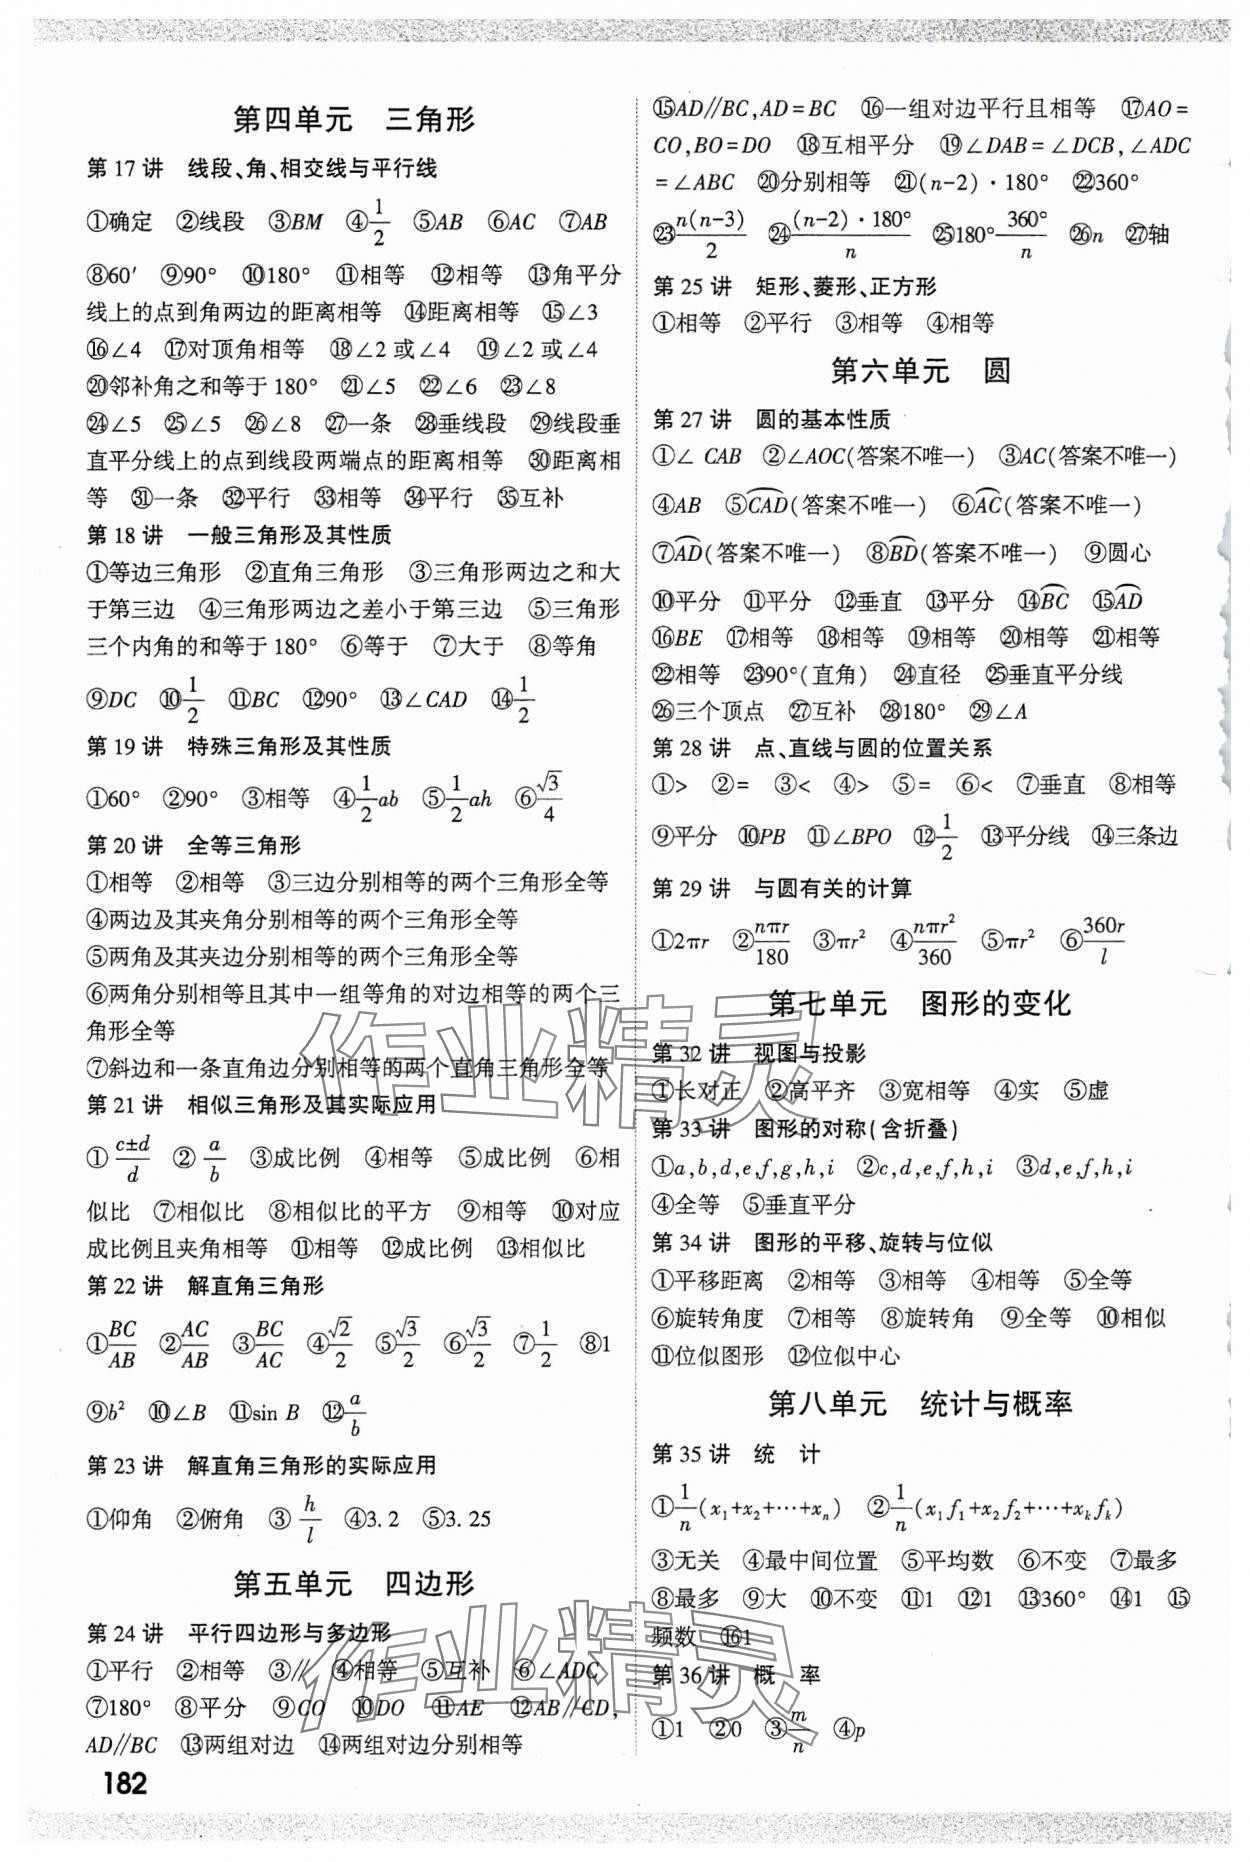 第四单元　三角形
第 17 讲　线段、角、相交线与平行线
①确定　②线段　③BM　④1/2　⑤AB　⑥AC　⑦AB
⑧60′　⑨90°　⑩180°　⑪相等　⑫相等　⑬角平分
线上的点到角两边的距离相等　⑭距离相等　⑮∠3
⑯∠4　⑰对顶角相等　⑱∠2或∠4　⑲∠2或∠4
⑳邻补角之和等于180°　㉑∠5　㉒∠6　㉓∠8
㉔∠5　㉕∠5　㉖∠8　㉗一条　㉘垂线段　㉙线段垂
直平分线上的点到线段两端点的距离相等　㉚距离相
等　㉛一条　㉜平行　㉝相等　㉞平行　㉟互补
第 18 讲　一般三角形及其性质
①等边三角形　②直角三角形　③三角形两边之和大
于第三边　④三角形两边之差小于第三边　⑤三角形
三个内角的和等于180°　⑥等于　⑦大于　⑧等角
⑨DC　⑩1/2　⑪BC　⑫90°　⑬∠CAD　⑭1/2
第 19 讲　特殊三角形及其性质
①60°　②90°　③相等　④1/2ab　⑤1/2ah　⑥√3/4
第 20 讲　全等三角形
①相等　②相等　③三边分别相等的两个三角形全等
④两边及其夹角分别相等的两个三角形全等
⑤两角及其夹边分别相等的两个三角形全等
⑥两角分别相等且其中一组等角的对边相等的两个三
角形全等
⑦斜边和一条直角边分别相等的两个直角三角形全等
第 21 讲　相似三角形及其实际应用
①(c±d)/d　②a/b　③成比例　④相等　⑤成比例　⑥相
似比　⑦相似比　⑧相似比的平方　⑨相等　⑩对应
成比例且夹角相等　⑪相等　⑫成比例　⑬相似比
第 22 讲　解直角三角形
①BC/AB　②AC/AB　③BC/AC　④√2/2　⑤√3/2　⑥√3/2　⑦1/2　⑧1
⑨b²　⑩∠B　⑪sin B　⑫a/b
第 23 讲　解直角三角形的实际应用
①仰角　②俯角　③h/l　④3.2　⑤3.25
第五单元　四边形
第 24 讲　平行四边形与多边形
①平行　②相等　③∥　④相等　⑤互补　⑥∠ADC
⑦180°　⑧平分　⑨CO　⑩DO　⑪AE　⑫AB∥CD,
AD∥BC　⑬两组对边　⑭两组对边分别相等
182
⑮AD∥BC,AD=BC　⑯一组对边平行且相等　⑰AO=
CO,BO=DO　⑱互相平分　⑲∠DAB=∠DCB,∠ADC
=∠ABC　⑳分别相等　㉑(n-2)·180°　㉒360°
㉓n(n-3)/2　㉔(n-2)·180°/n　㉕180°-360°/n　㉖n　㉗轴
第 25 讲　矩形、菱形、正方形
①相等　②平行　③相等　④相等
第六单元　圆
第 27 讲　圆的基本性质
①∠ CAB　②∠AOC(答案不唯一)　③AC(答案不唯一)
④AB　⑤C͡AD(答案不唯一)　⑥A͡C(答案不唯一)
⑦A͡D(答案不唯一)　⑧B͡D(答案不唯一)　⑨圆心
⑩平分　⑪平分　⑫垂直　⑬平分　⑭B͡C　⑮A͡D
⑯BE　⑰相等　⑱相等　⑲相等　⑳相等　㉑相等
㉒相等　㉓90°(直角)　㉔直径　㉕垂直平分线
㉖三个顶点　㉗互补　㉘180°　㉙∠A
第 28 讲　点、直线与圆的位置关系
①>　②=　③<　④>　⑤=　⑥<　⑦垂直　⑧相等
⑨平分　⑩PB　⑪∠BPO　⑫1/2　⑬平分线　⑭三条边
第 29 讲　与圆有关的计算
①2πr　②nπr/180　③πr²　④nπr²/360　⑤πr²　⑥360r/l
第七单元　图形的变化
第 32 讲　视图与投影
①长对正　②高平齐　③宽相等　④实　⑤虚
第 33 讲　图形的对称(含折叠)
①a,b,d,e,f,g,h,i　②c,d,e,f,h,i　③d,e,f,h,i
④全等　⑤垂直平分
第 34 讲　图形的平移、旋转与位似
①平移距离　②相等　③相等　④相等　⑤全等
⑥旋转角度　⑦相等　⑧旋转角　⑨全等　⑩相似
⑪位似图形　⑫位似中心
第八单元　统计与概率
第 35 讲　统　计
①1/n(x₁+x₂+…+xₙ)　②1/n(x₁f₁+x₂f₂+…+xₖfₖ)
③无关　④最中间位置　⑤平均数　⑥不变　⑦最多
⑧最多　⑨大　⑩不变　⑪1　⑫1　⑬360°　⑭1　⑮
频数　⑯1
第 36 讲　概　率
①1　②0　③m/n　④p
作业精灵
作业精灵